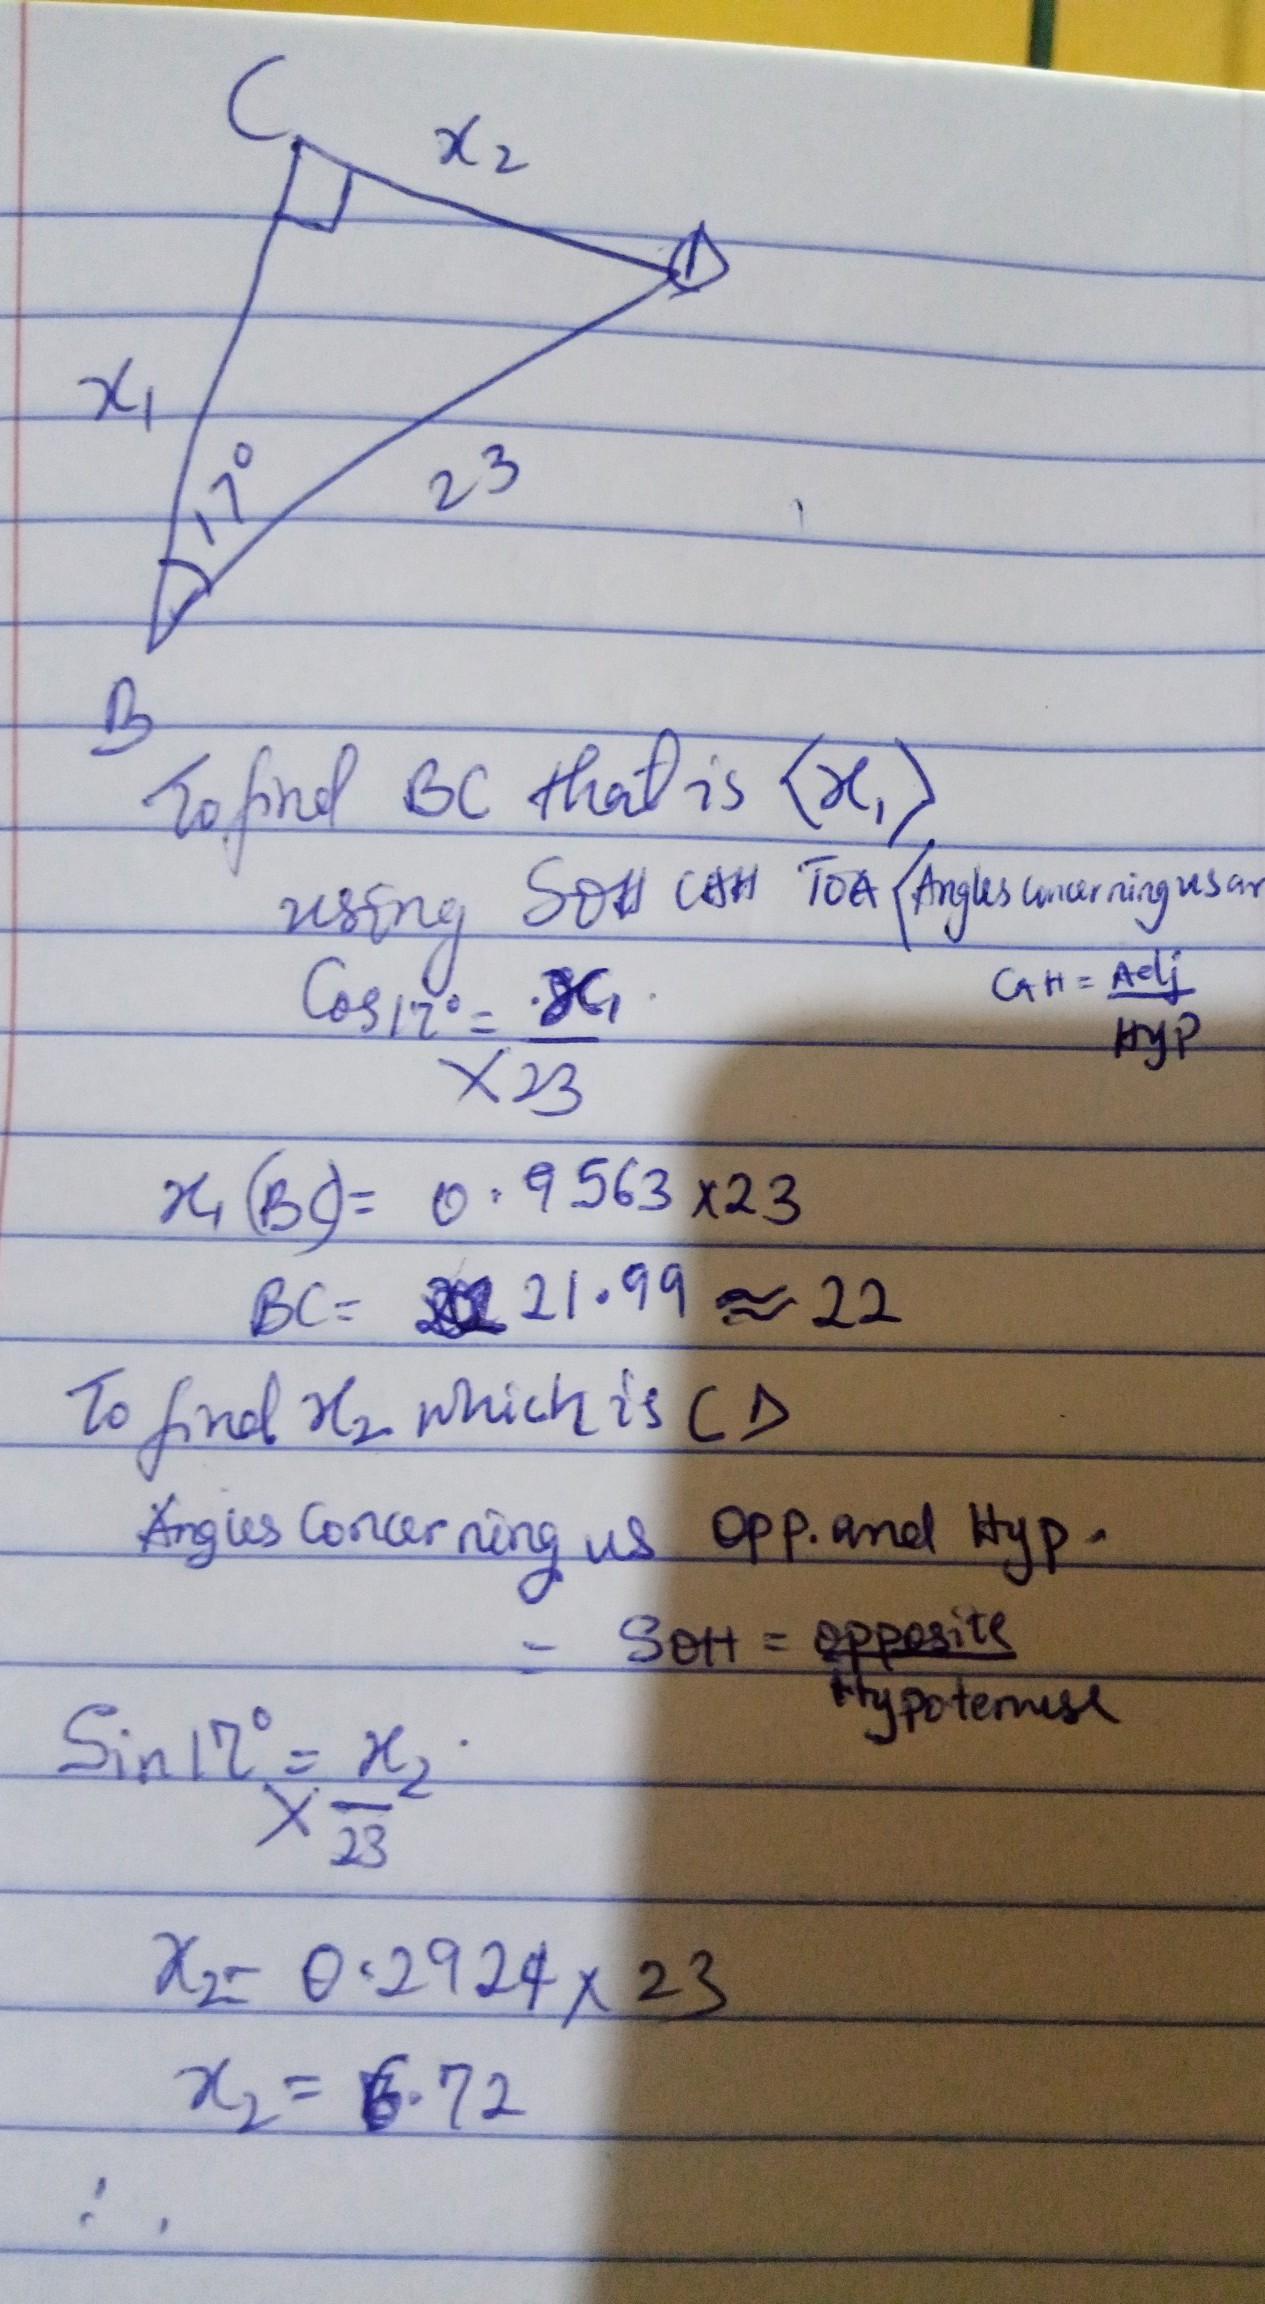 C
x₂
D
x₁
17°
23
B
To find BC that is (x₁)
using SOH CAH TOA (Angles concerning us ar
Cos17° = x₁
CAH = Adj
Hyp
X 23
x₁ (BC) = 0.9563 x 23
BC = 21.99 ≈ 22
To find x₂ which is CD
Angles Concerning us Opp. and Hyp.
= SOH = opposite
Hypotenuse
Sin17° = x₂
X 23
x₂ = 0.2924 x 23
x₂ = 6.72
∴